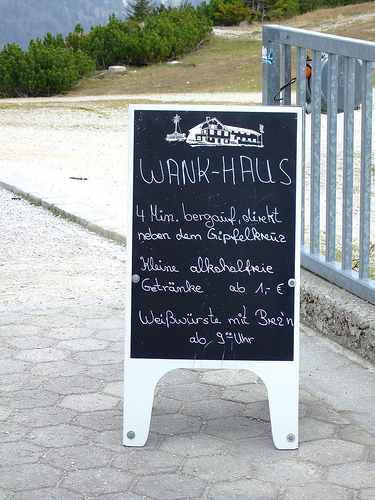 WANK-HAUS
4 Min. bergauf, direkt
neben dem Gipfelkreuz
Kleine alkoholfreie
Getränke ab 1,- €
Weißwürste mit Brez'n
ab 9⁰⁰ Uhr